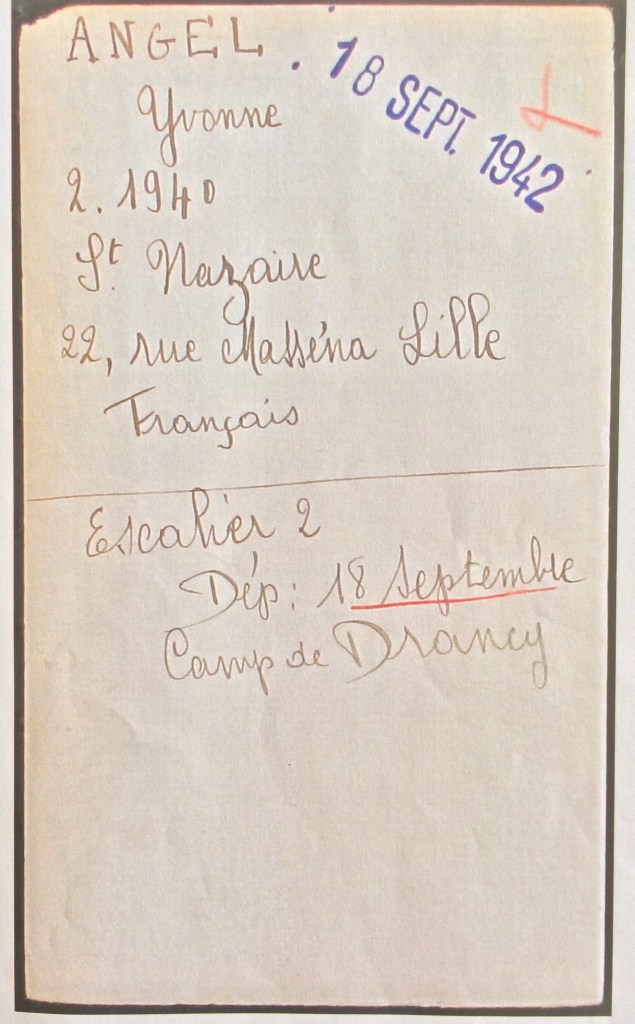 ANGEL
18 SEPT. 1942
Yvonne
2. 1940
St. Nazaire
22, rue Masséna Lille
Français
Escalier 2
Dép: 18 Septembre
Camp de Drancy